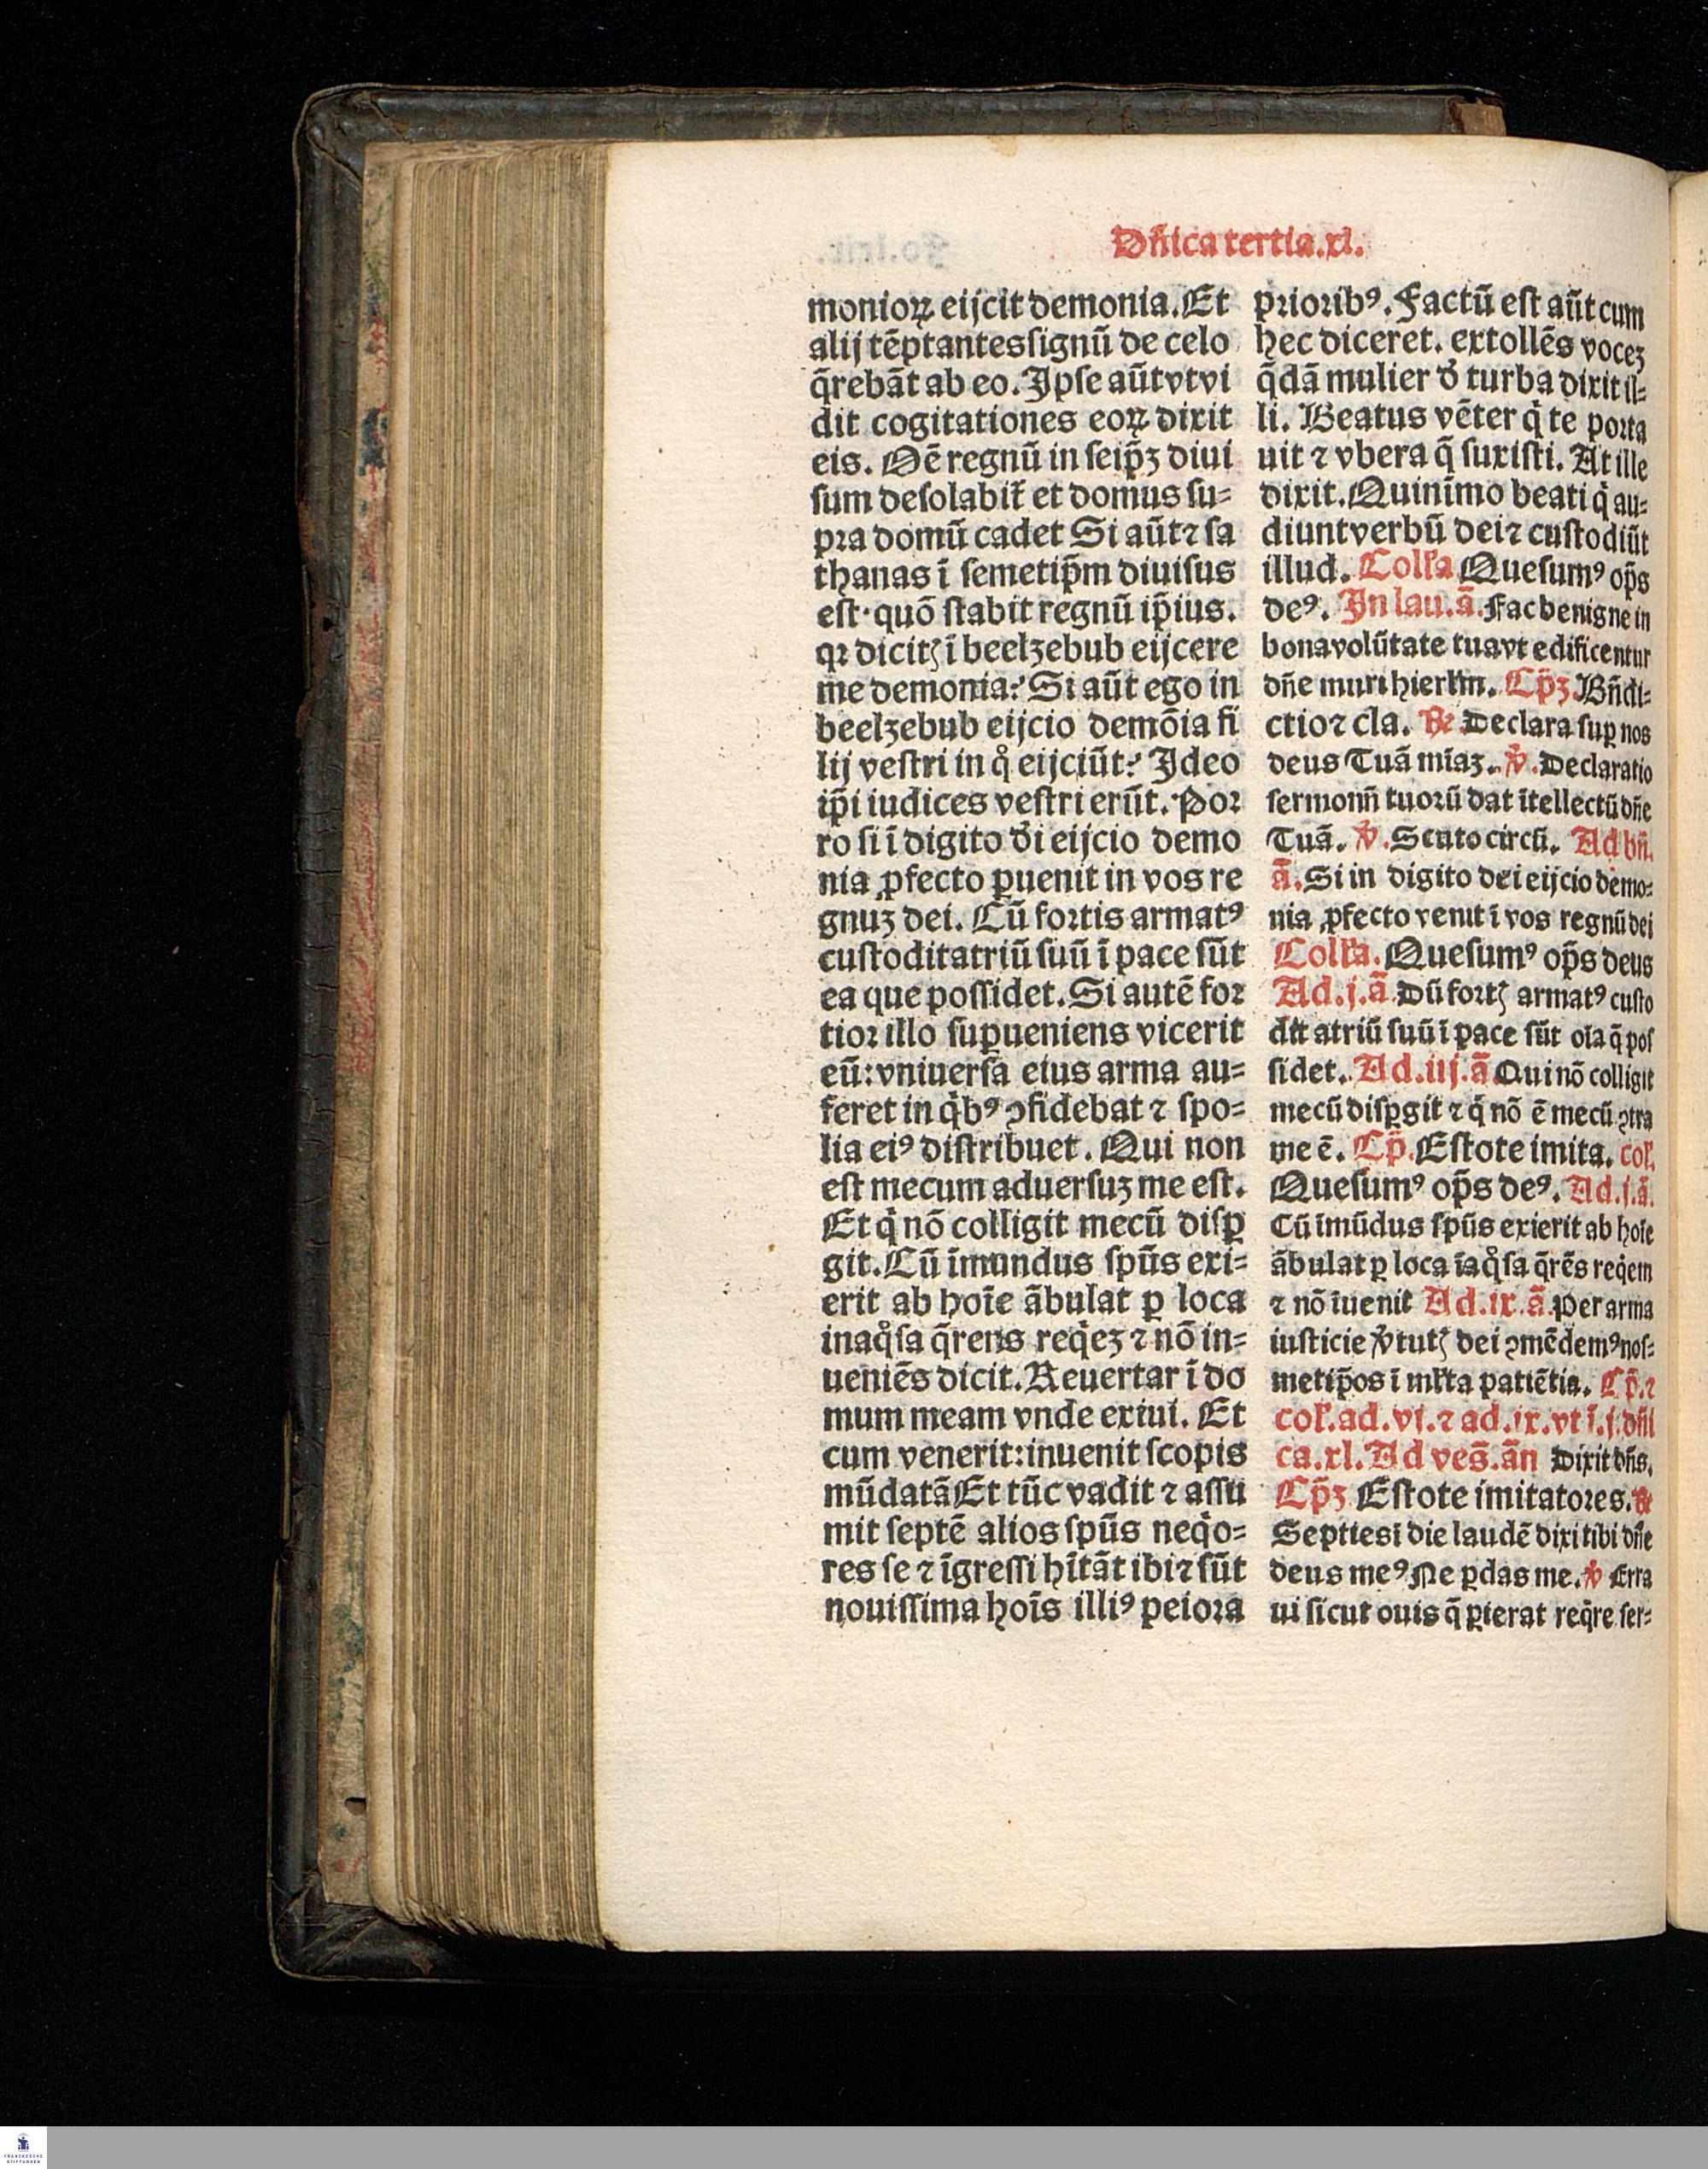 Dñica tertia.xl.
monioꝝ eijcit demonia. Et
alij tēptantes signū de celo
q̄rebāt ab eo. Ipse aūt vt vi
dit cogitationes eoꝝ dixit
eis. Oē regnū in seip̄ꝫ diui
sum desolabit̄ et domus su⸗
pra domū cadet Si aūt ⁊ sa
thanas ī semetip̄m diuisus
est· quō stabit regnū ip̄ius.
qꝛ dicitꝭ ī beelzebub eijcere
me demonia? Si aūt ego in
beelzebub eijcio demōia fi
lij vestri in qͦ eijciūt? Ideo
ip̄i iudices vestri erūt. Por
ro si ī digito dı̄ eijcio demo
nia ꝓfecto ꝑuenit in vos re
gnuꝫ dei. Cū fortis armatꝰ
custodit atriū suū ī pace sūt
ea que possidet. Si autē for
tior illo suꝑueniens vicerit
eū: vniuersa eius arma au⸗
feret in qͥbꝰ ꝯfidebat ⁊ spo⸗
lia eiꝰ distribuet. Qui non
est mecum aduersuꝫ me est.
Et qͥ nō colligit mecū disꝑ
git. Cū īmundus spūs exi⸗
erit ab hoīe ābulat ꝑ loca
inaqͦsa q̄rens reqͥeꝫ ⁊ nō in⸗
ueniēs dicit. Reuertar ī do
mum meam vnde exiui. Et
cum venerit: inuenit scopis
mūdatā Et tūc vadit ⁊ assu
mit septē alios spūs neqͦo⸗
res se ⁊ īgressi hītāt ibi ⁊ sūt
nouissima hoīs illiꝰ peiora
prioribꝰ. Factū est aūt cum
hec diceret. extollēs voceꝫ
q̄dā mulier dͤ turba dixit il⸗
li. Beatus vēter qͥ te porta
uit ⁊ vbera q̄ suxisti. At ille
dixit. Quinīmo beati qͥ au⸗
diunt verbū dei ⁊ custodiūt
illud. Coll̄a Quesumꝰ op̄s
deꝰ. In lau. ā. Fac benigne in
bona volūtate tua vt edificentur
dñe muri hierl̄m. Cp̄ꝫ Bn̄di⸗
ctio ⁊ cla. ℟ Declara suꝑ nos
deus Tuā mīaꝫ. ℣. Declaratio
sermonū tuorū dat ītellectū dñe
Tuā. ℣. Scuto circū. Ad bn̄.
ā. Si in digito dei eijcio demo⸗
nia ꝓfecto venit ī vos regnū dei
Coll̄a. Quesumꝰ op̄s deus
Ad .j. ā Dū fortꝭ armatꝰ custo
dit atriū suū ī pace sūt oīa q̄ pos
sidet. Ad .iij. ā Qui nō colligit
mecū disꝑgit ⁊ qͥ nō ē mecū ꝯtra
me ē. Cp̄. Estote imita. col̄.
Quesumꝰ op̄s deꝰ. Ad .j. ā.
Cū īmūdus spūs exierit ab hoīe
ābulat ꝑ loca īaqͦsa q̄rēs reqͥem
⁊ nō īuenit Ad .ix. ā. Per arma
iusticie ꝟtutꝭ dei ꝯmēdemꝰ nos⸗
metip̄os ī ml̄ta patiētia. Cp̄. ⁊
col̄. ad .vi. ⁊ ad .ix. vt ī .j. dñi
ca .xl. Ad ves̄. ān Dixit dñs.
Cp̄ꝫ Estote imitatores. ℟
Septies ī die laudē dixi tibi dñe
deus meꝰ Ne ꝑdas me. ℣ Erra
ui sicut ouis q̄ ꝑierat reqͥre ser⸗
FRANCKESCHE
STIFTUNGEN